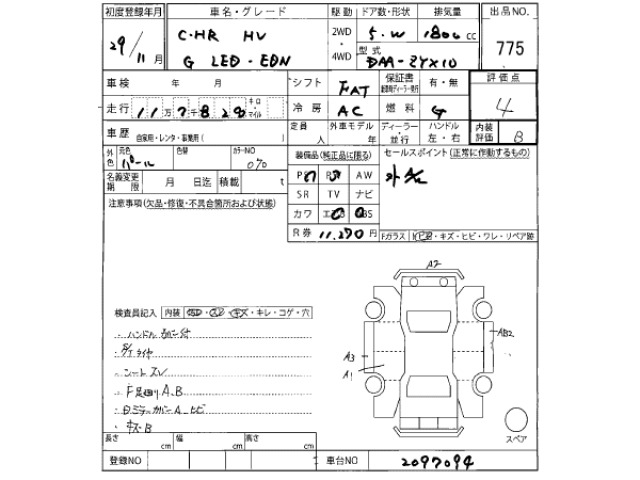 初度登録年月 車名・グレード 駆動 ドア数・形状 排気量 出品NO.
29/11月 C-HR HV 2WD・4WD 5・W 1800cc 775
G LED-EDN 型式 DAA-ZYX10
車検 年 月 シフト FAT 保証書 有・無 評価点
走行 11万7千828 キロ マイル 冷房 AC 燃料 G 4
車歴 自家用・レンタ・事業用( ) 定員 人 外車モデル 年 ディーラー・並行 ハンドル 左・右 内装評価 B
外色 元色 パール 色替 カラーNO 070 装備品(純正品に限る) セールスポイント(正常に作動するもの)
名義変更期限 月 日迄 積載 t PS PW AW
注意事項(欠品・修復・不具合箇所および状態) SR TV ナビ
カワ エアB ABS
R券 11,270円 Fガラス ・キズ・ヒビ・ワレ・リペア跡
A2
検査員記入 内装 ・キズ・キレ・コゲ・穴
・ハンドル
タイヤ AB2
・シートスレ A3
・F足廻りA.B A1
カバーA ヒビ
・キズB
スペア
長さ cm 幅 cm 高さ cm
登録NO 車台NO 2097094